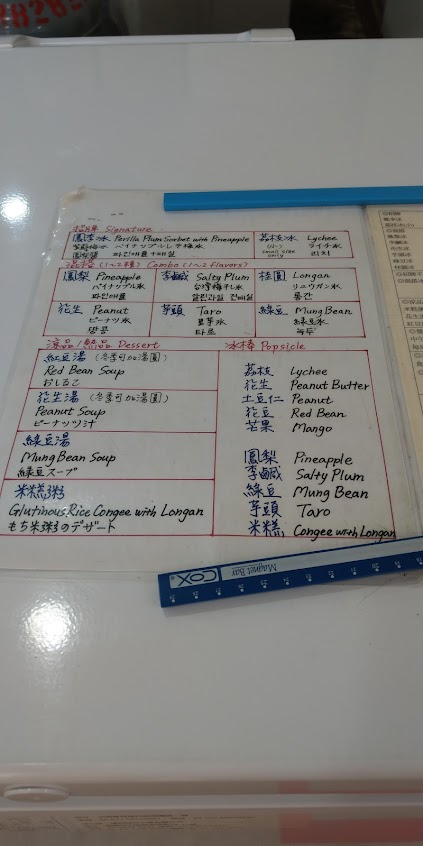 招牌 Signature
鳳李冰 Perilla Plum Sorbet with Pineapple
パイナップルし干梅氷
荔枝冰 Lychee
(小) ライチ氷
small size only 리치
混搭 (1~2種) Combo (1~2 flavors)
鳳梨 Pineapple
パイナップル氷
파인애플
李鹹 Salty Plum
台湾梅干し氷
桂圓 Longan
リュウガン氷
용안
花生 Peanut
ピーナツ氷
땅콩
芋頭 Taro
里芋氷
타로
綠豆 Mung Bean
緑豆氷
녹두
涼品/熱品 Dessert
紅豆湯 (冬季可加湯圓)
Red Bean Soup
おしるこ
花生湯 (冬季可加湯圓)
Peanut Soup
ピーナッツ汁
綠豆湯
Mung Bean Soup
緑豆スープ
米糕粥
Glutinous Rice Congee with Longan
もち米粥のデザート
冰棒 Popsicle
荔枝 Lychee
花生 Peanut Butter
土豆仁 Peanut
花豆 Red Bean
芒果 Mango
鳳梨 Pineapple
李鹹 Salty Plum
綠豆 Mung Bean
芋頭 Taro
米糕 Congee with Longan
COX Magnet Bar